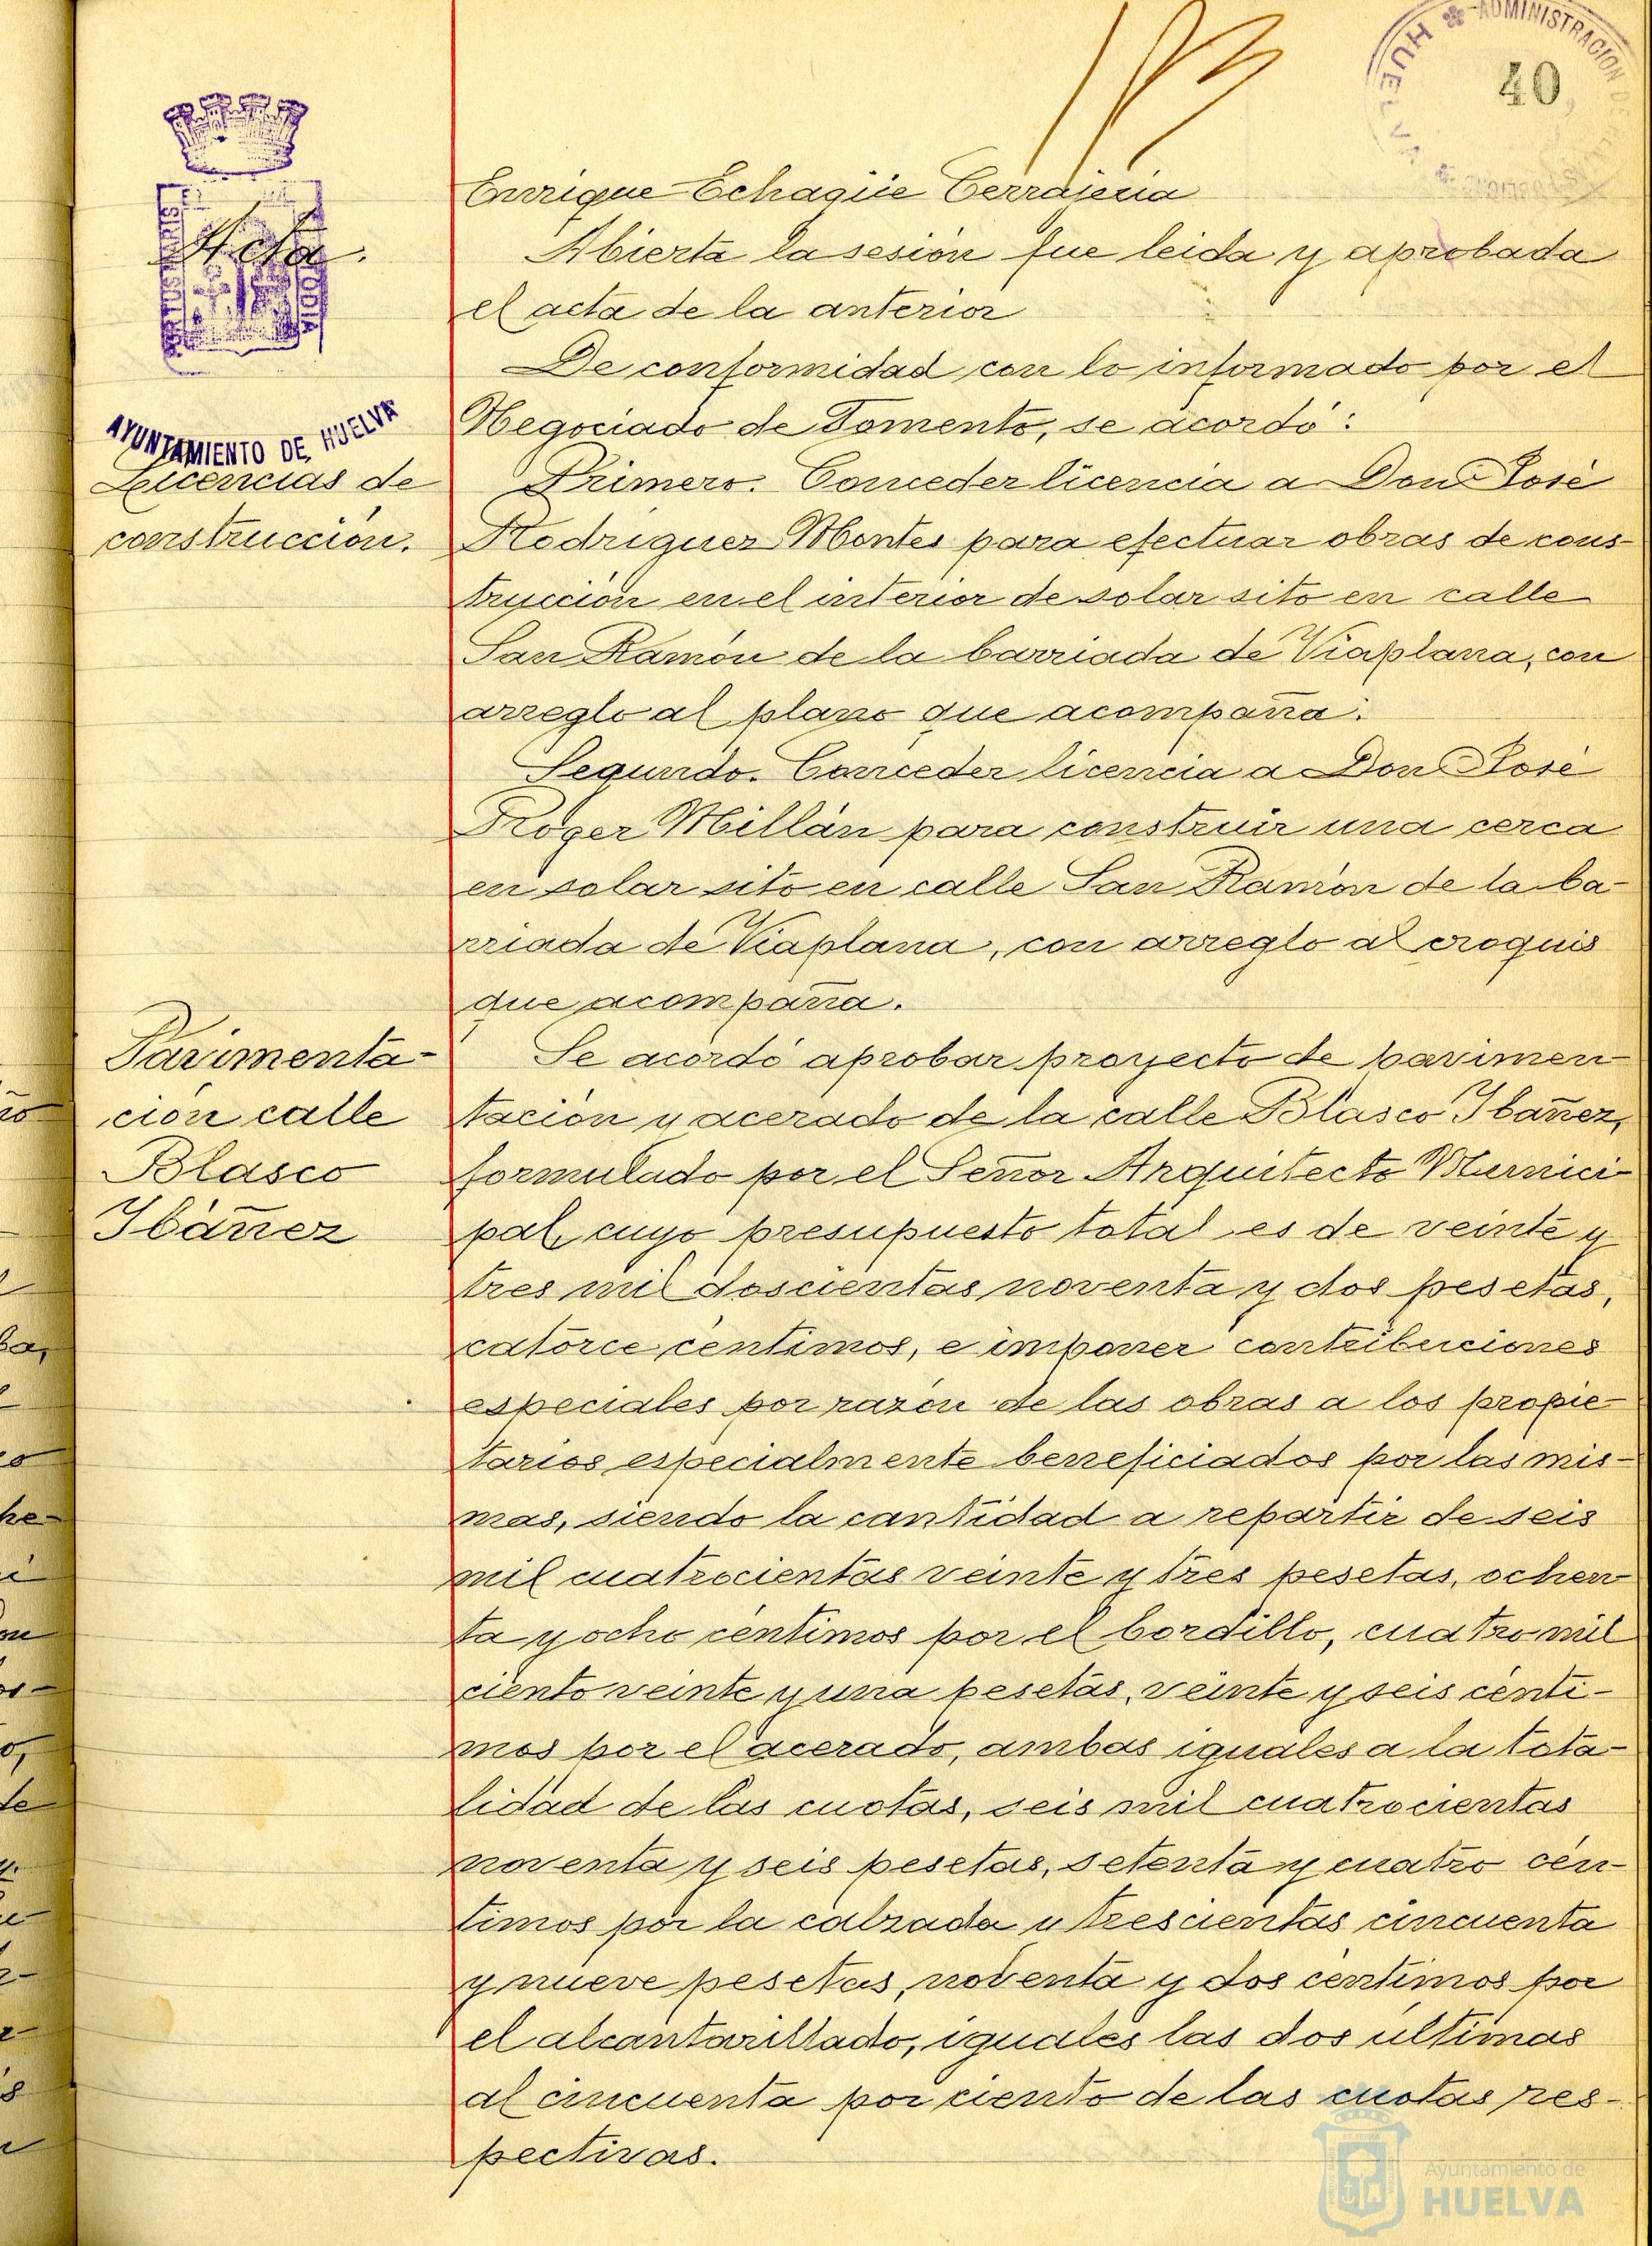 ADMINISTRACION
HUELVA
40
Enrique Echagüe Cerrajería
Acta.
Abierta la sesión fue leida y aprobada
el acta de la anterior
De conformidad con lo informado por el
Negociado de Fomento, se acordó:
AYUNTAMIENTO DE HUELVA
Licencias de
construcción.
Primero. Conceder licencia a Don José
Rodriguez Montes para efectuar obras de cons-
trucción en el interior de solar sito en calle
San Ramón de la barriada de Viaplana, con
arreglo al plano que acompaña.
Segundo. Conceder licencia a Don José
Roger Millán para construir una cerca
en solar sito en calle San Ramón de la ba-
rriada de Viaplana, con arreglo al croquis
que acompaña.
Pavimenta-
ción calle
Blasco
Ibáñez
Se acordó aprobar proyecto de pavimen-
tación y acerado de la calle Blasco Ibañez,
formulado por el Señor Arquitecto Munici-
pal, cuyo presupuesto total es de veinte y
tres mil doscientas noventa y dos pesetas,
catorce céntimos, e imponer contribuciones
especiales por razón de las obras a los propie-
tarios especialmente beneficiados por las mis-
mas, siendo la cantidad a repartir de seis
mil cuatrocientas veinte y tres pesetas, ochen-
ta y ocho céntimos por el bordillo, cuatro mil
ciento veinte y una pesetas, veinte y seis cénti-
mos por el acerado, ambas iguales a la tota-
lidad de las cuotas, seis mil cuatrocientas
noventa y seis pesetas, setenta y cuatro cén-
timos por la calzada y trescientas cincuenta
y nueve pesetas, noventa y dos céntimos por
el alcantarillado, iguales las dos últimas
al cincuenta por ciento de las cuotas res-
pectivas.
Ayuntamiento de
HUELVA